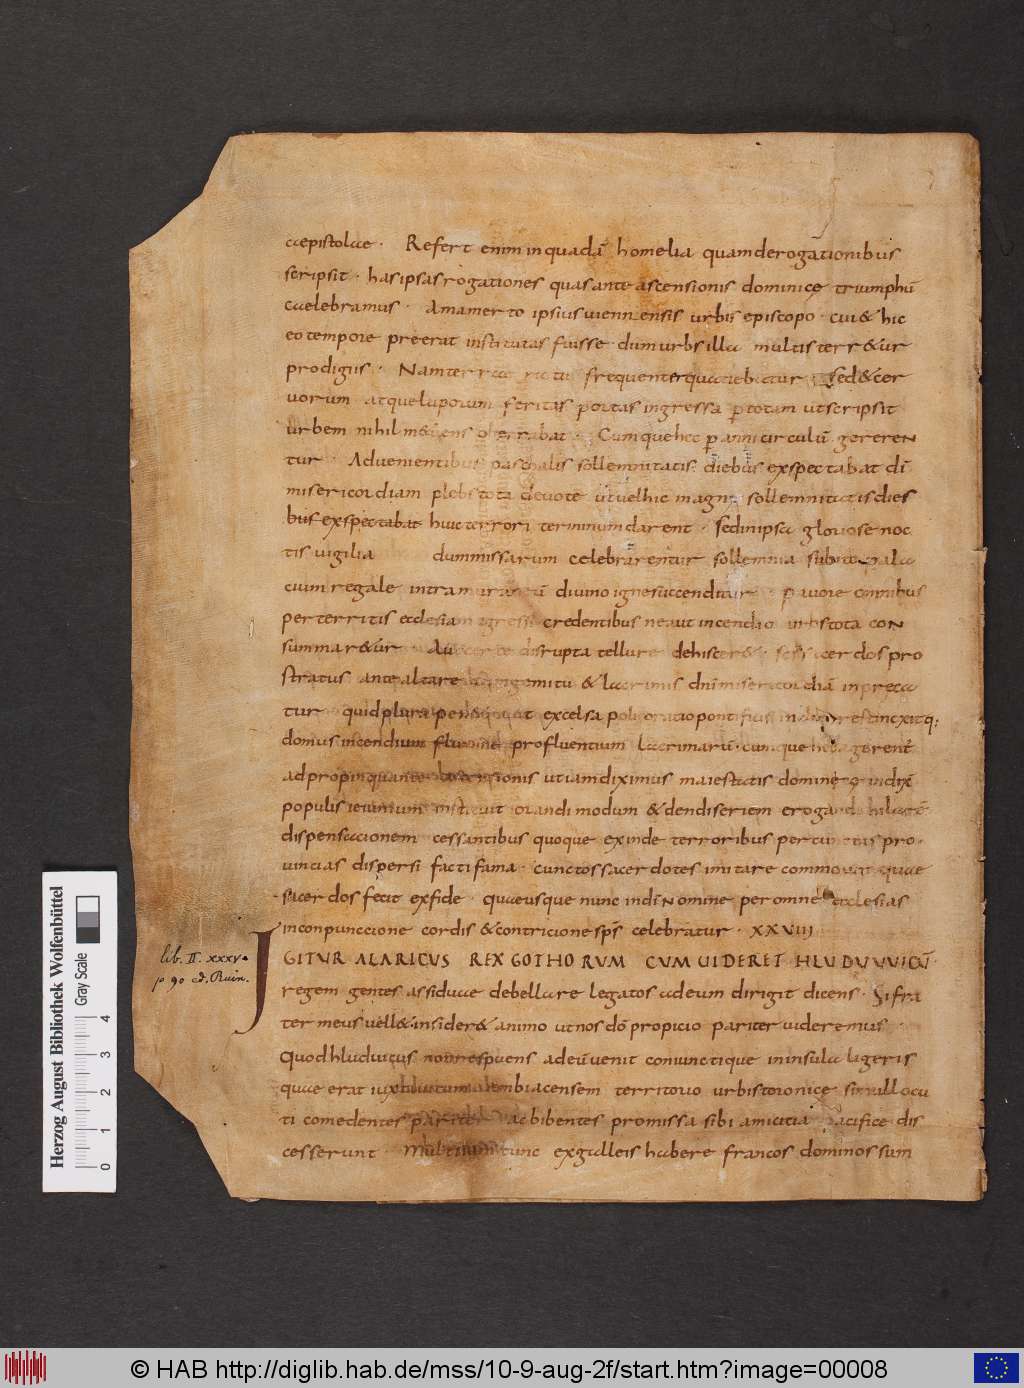 aepistolae · Refert enim inquadā homelia quamderogationibus
scripsit · hasipsasrogationes quasante ascensionis dominicę triumphū
caelebramus · Amamerto ipsiusviennensis urbis episcopo · cui & hic
eo tempore preerat institutas fuisse dumurbsilla multisterr&ur
prodigiis · Namterrae frequenterquatiebatur sed&cer
uorum atqueluporum feritas portas ingressa ptotam utscripsit
urbem nihil oberrabat · Cumquehec p anni circulū gereren
tur · Aduenientibus paschalis sollemnitatis diebus exspectabat dī
misericordiam plebs tota deuote utuelhic magnę sollemnitatisdies
bus exspectabat huicterrori terminumdarent · sedinipsa gloriose noc
tis vigilia dummissarum celebrarentur sollemnia subito pala
cium regale intramuraneū diuino ignesuccenditur · pauore omnibus
perterritis ecclesiam egressi credentibus neautincendio urbstota con
summar&ur · disrupta tellure dehiscer& · sacerdos pro
stratus ante altare cumgemitu & lacrimis dnī misericordiā inpreca
tur · quid plura excelsa poli oratiopontificis restinxitq;
domus incendium flumine profluentium lacrimarū · cumque gerent
adpropinquante ascensionis utiamdiximus maiestatis dominicę indix
populis ieiunium instituit orandi modum & dendiseriem erogandi
dispensacionem cessantibus quoque exinde terroribus percunctas pro
uincias dispersi factifama · cunctossacerdotes imitare commouit quae
sacerdos fecit exfide · quaeusque nunc indīnomine per omnes ecclesias
inconpunccione cordis & contricione sps celebratur · XXVIII
IGITUR ALARICUS REX GOTHORUM CUM UIDERET HLUDUUUICŪ
regem gentes assiduae debellare legatos adeum dirigit dicens · Sifra
ter meus uell&insider& animo utnos dō propicio pariter uideremus ·
Quodhluduicus nonrespuens adeū venit coniunctique ininsula ligeris
quae erat iuxtauicum ambiacensem territorio urbistoronice simullocu
ti comedentes pariter ac bibentes promissa sibi amicitia pacifice dis
cesserunt · Multi tunc exgalleis habere francos dominossum
lib. II. xxxv.
p 90 ed. Ruin.
Herzog August Bibliothek Wolfenbüttel
Gray Scale
0 1 2 3 4
© HAB http://diglib.hab.de/mss/10-9-aug-2f/start.htm?image=00008